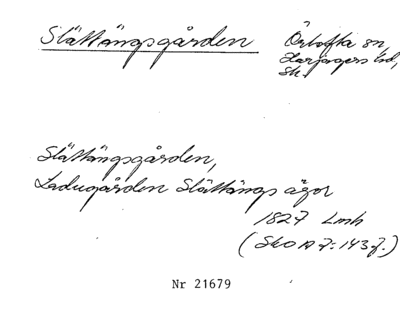 Slättängsgården Örtofta sn,
Harjagers hd,
Sk.
Slättängsgården,
Ladugården Slättängs ägor
1827 Lmh
(SkO A 7:143 f.)
Nr 21679